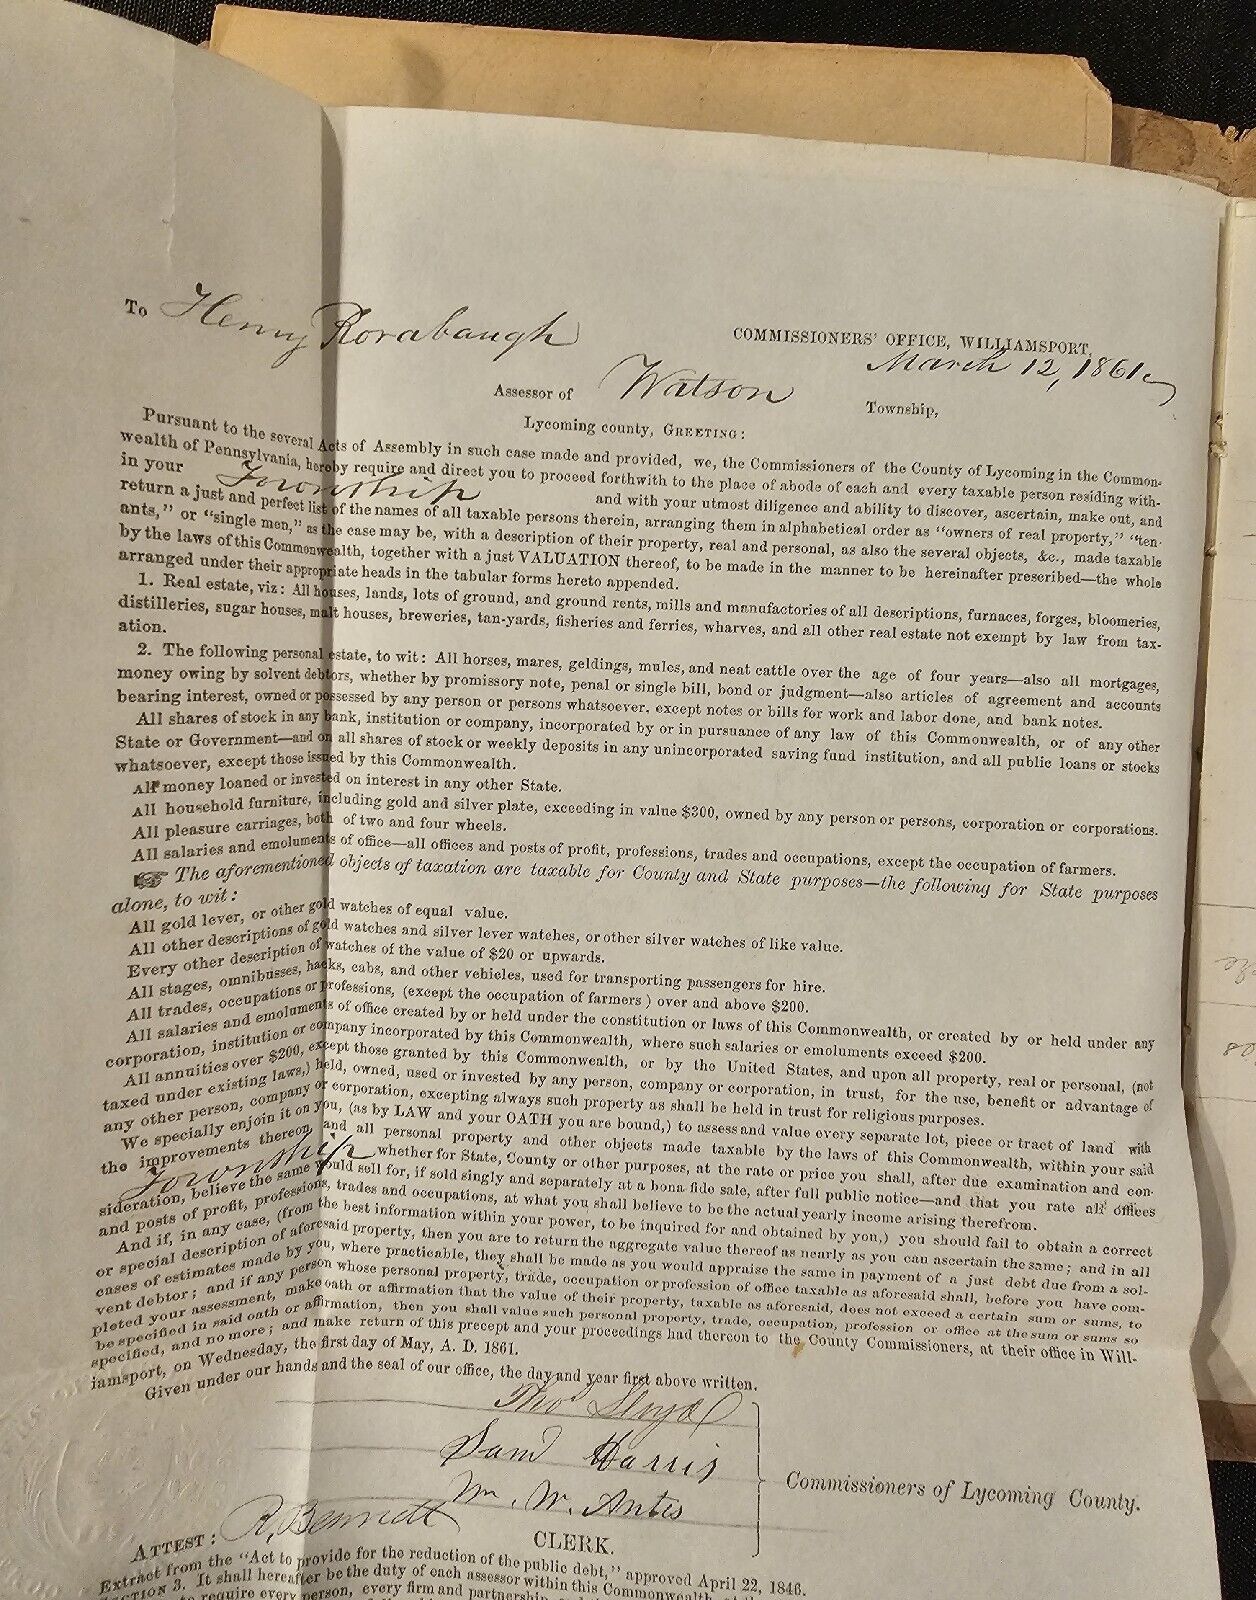 To Henry Rorabaugh
COMMISSIONERS' OFFICE, WILLIAMSPORT,
March 12, 1861.
Assessor of Watson Township,
Lycoming county, GREETING:
Pursuant to the several Acts of Assembly in such case made and provided, we, the Commissioners of the County of Lycoming in the Common-
wealth of Pennsylvania, hereby require and direct you to proceed forthwith to the place of abode of each and every taxable person residing with-
in your Township and with your utmost diligence and ability to discover, ascertain, make out, and
return a just and perfect list of the names of all taxable persons therein, arranging them in alphabetical order as "owners of real property," "ten-
ants," or "single men," as the case may be, with a description of their property, real and personal, as also the several objects, &c., made taxable
by the laws of this Commonwealth, together with a just VALUATION thereof, to be made in the manner to be hereinafter prescribed—the whole
arranged under their appropriate heads in the tabular forms hereto appended.
1. Real estate, viz: All houses, lands, lots of ground, and ground rents, mills and manufactories of all descriptions, furnaces, forges, bloomeries,
distilleries, sugar houses, malt houses, breweries, tan-yards, fisheries and ferries, wharves, and all other real estate not exempt by law from tax-
ation.
2. The following personal estate, to wit: All horses, mares, geldings, mules, and neat cattle over the age of four years—also all mortgages,
money owing by solvent debtors, whether by promissory note, penal or single bill, bond or judgment—also articles of agreement and accounts
bearing interest, owned or possessed by any person or persons whatsoever, except notes or bills for work and labor done, and bank notes.
All shares of stock in any bank, institution or company, incorporated by or in pursuance of any law of this Commonwealth, or of any other
State or Government—and on all shares of stock or weekly deposits in any unincorporated saving fund institution, and all public loans or stocks
whatsoever, except those issued by this Commonwealth.
All money loaned or invested on interest in any other State.
All household furniture, including gold and silver plate, exceeding in value $300, owned by any person or persons, corporation or corporations.
All pleasure carriages, both of two and four wheels.
All salaries and emoluments of office—all offices and posts of profit, professions, trades and occupations, except the occupation of farmers.
☞ The aforementioned objects of taxation are taxable for County and State purposes—the following for State purposes
alone, to wit:
All gold lever, or other gold watches of equal value.
All other descriptions of gold watches and silver lever watches, or other silver watches of like value.
Every other description of watches of the value of $20 or upwards.
All stages, omnibusses, hacks, cabs, and other vehicles, used for transporting passengers for hire.
All trades, occupations or professions, (except the occupation of farmers) over and above $200.
All salaries and emoluments of office created by or held under the constitution or laws of this Commonwealth, or created by or held under any
corporation, institution or company incorporated by this Commonwealth, where such salaries or emoluments exceed $200.
All annuities over $200, except those granted by this Commonwealth, or by the United States, and upon all property, real or personal, (not
taxed under existing laws,) held, owned, used or invested by any person, company or corporation, in trust, for the use, benefit or advantage of
any other person, company or corporation, excepting always such property as shall be held in trust for religious purposes.
We specially enjoin it on you, (as by LAW and your OATH you are bound,) to assess and value every separate lot, piece or tract of land with
the improvements thereon, and all personal property and other objects made taxable by the laws of this Commonwealth, within your said
Township whether for State, County or other purposes, at the rate or price you shall, after due examination and con-
sideration, believe the same would sell for, if sold singly and separately at a bona fide sale, after full public notice—and that you rate all offices
and posts of profit, professions, trades and occupations, at what you shall believe to be the actual yearly income arising therefrom.
And if, in any case, (from the best information within your power, to be inquired for and obtained by you,) you should fail to obtain a correct
or special description of aforesaid property, then you are to return the aggregate value thereof as nearly as you can ascertain the same; and in all
cases of estimates made by you, where practicable, they shall be made as you would appraise the same in payment of a just debt due from a sol-
vent debtor; and if any person whose personal property, trade, occupation or profession of office taxable as aforesaid shall, before you have com-
pleted your assessment, make oath or affirmation that the value of their property, taxable as aforesaid, does not exceed a certain sum or sums, to
be specified in said oath or affirmation, then you shall value such personal property, trade, occupation, profession or office at the sum or sums so
specified, and no more; and make return of this precept and your proceedings had thereon to the County Commissioners, at their office in Will-
iamsport, on Wednesday, the first day of May, A. D. 1861.
Given under our hands and the seal of our office, the day and year first above written.
Thos Lloyd
Saml Harris
Wm. W. Antes
Commissioners of Lycoming County.
ATTEST: R. Bennett CLERK.
Extract from the "Act to provide for the reduction of the public debt," approved April 22, 1846.
SECTION 3. It shall hereafter be the duty of each assessor within this Commonwealth,
to require every person, every firm and partnership